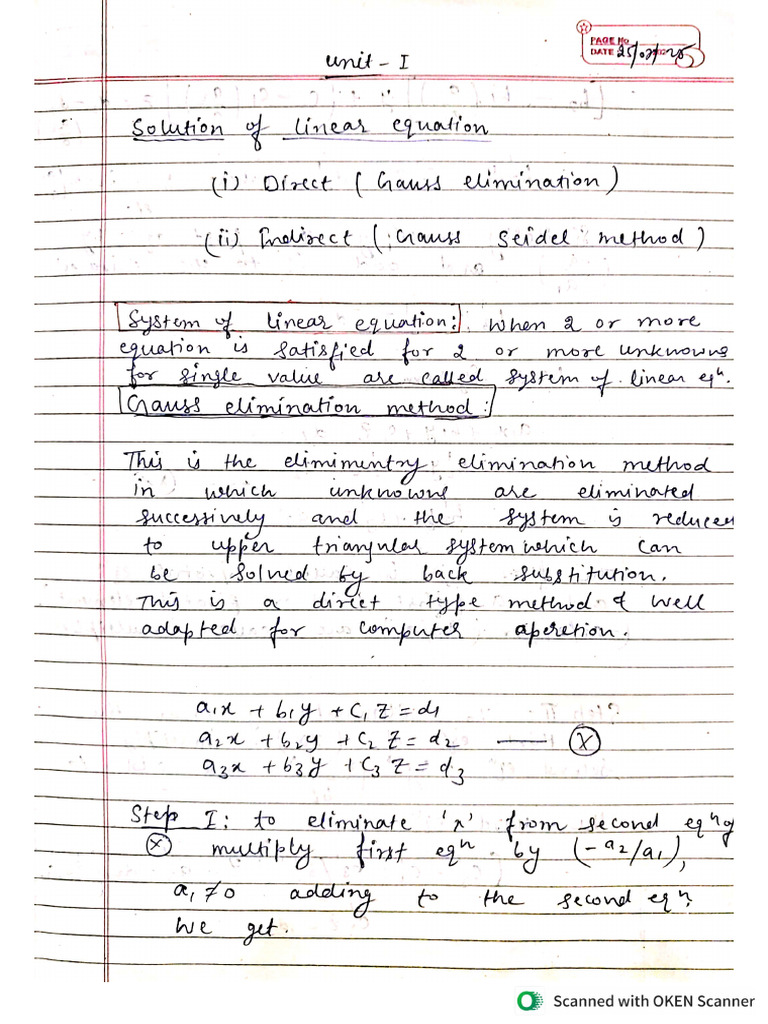 PAGE No
DATE 25/02/25
Unit - I
Solution of linear equation
(i) Direct ( Gauss elimination )
(ii) Indirect ( Gauss Seidel method )
System of linear equation: When 2 or more
equation is satisfied for 2 or more unknowns
for single value are called system of linear eqⁿ.
Gauss elimination method:
This is the elimimentry elimination method
in which unknowns are eliminated
successively and the system is reduced
to upper triangular system which can
be solved by back substitution.
This is a direct type method & well
adapted for computer aperetion.
a₁x + b₁y + c₁ z = d₁
a₂x + b₂y + c₂ z = d₂ — (X)
a₃x + b₃y + c₃ z = d₃
Step I: to eliminate 'x' from second eqⁿ of
(X) multiply first eqⁿ by (-a₂/a₁),
a₁ ≠ 0 adding to the second eqⁿ.
We get.
Scanned with OKEN Scanner